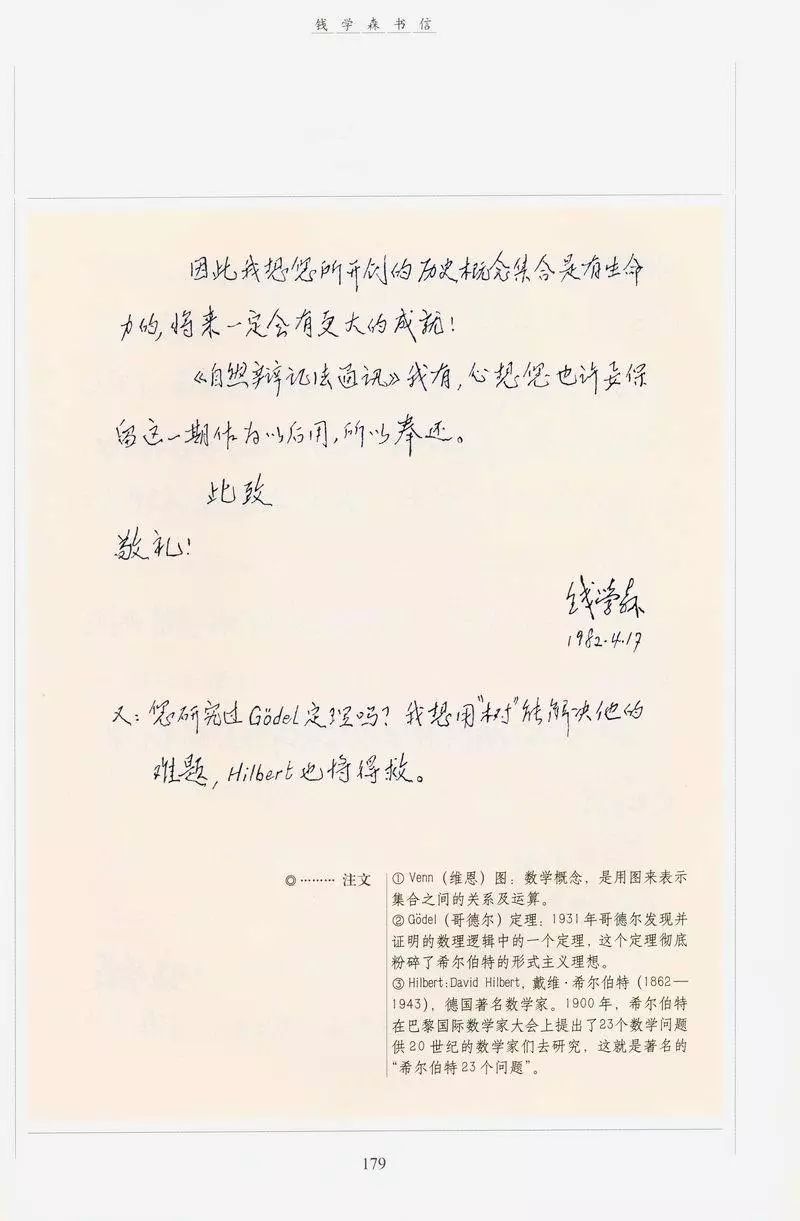 钱学森书信
因此我想您所开创的历史概念集合是有生命
力的,将来一定会有更大的成就!
《自然辩证法通讯》我有,心想您也许要保
留这一期作为以后用,所以奉还。
此致
敬礼!
钱学森
1982.4.17
又:您研究过Gödel定理吗?我想用"树"能解决他的
难题,Hilbert也将得救。
◎………注文
① Venn(维恩)图:数学概念,是用图来表示
集合之间的关系及运算。
② Gödel(哥德尔)定理:1931年哥德尔发现并
证明的数理逻辑中的一个定理,这个定理彻底
粉碎了希尔伯特的形式主义理想。
③ Hilbert:David Hilbert,戴维·希尔伯特(1862—
1943),德国著名数学家。1900年,希尔伯特
在巴黎国际数学家大会上提出了23个数学问题
供20世纪的数学家们去研究,这就是著名的
“希尔伯特23个问题”。
179